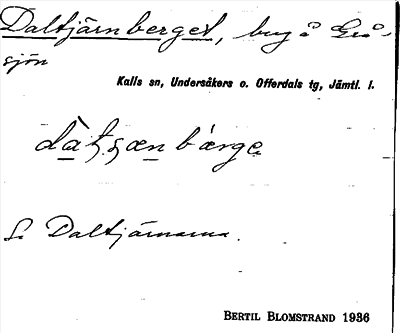 Daltjärnberget, bug å Grå-
sjön
Kalls sn, Undersåkers o. Offerdals tg, Jämtl. l.
S. Daltjärnarna.
BERTIL BLOMSTRAND 1936